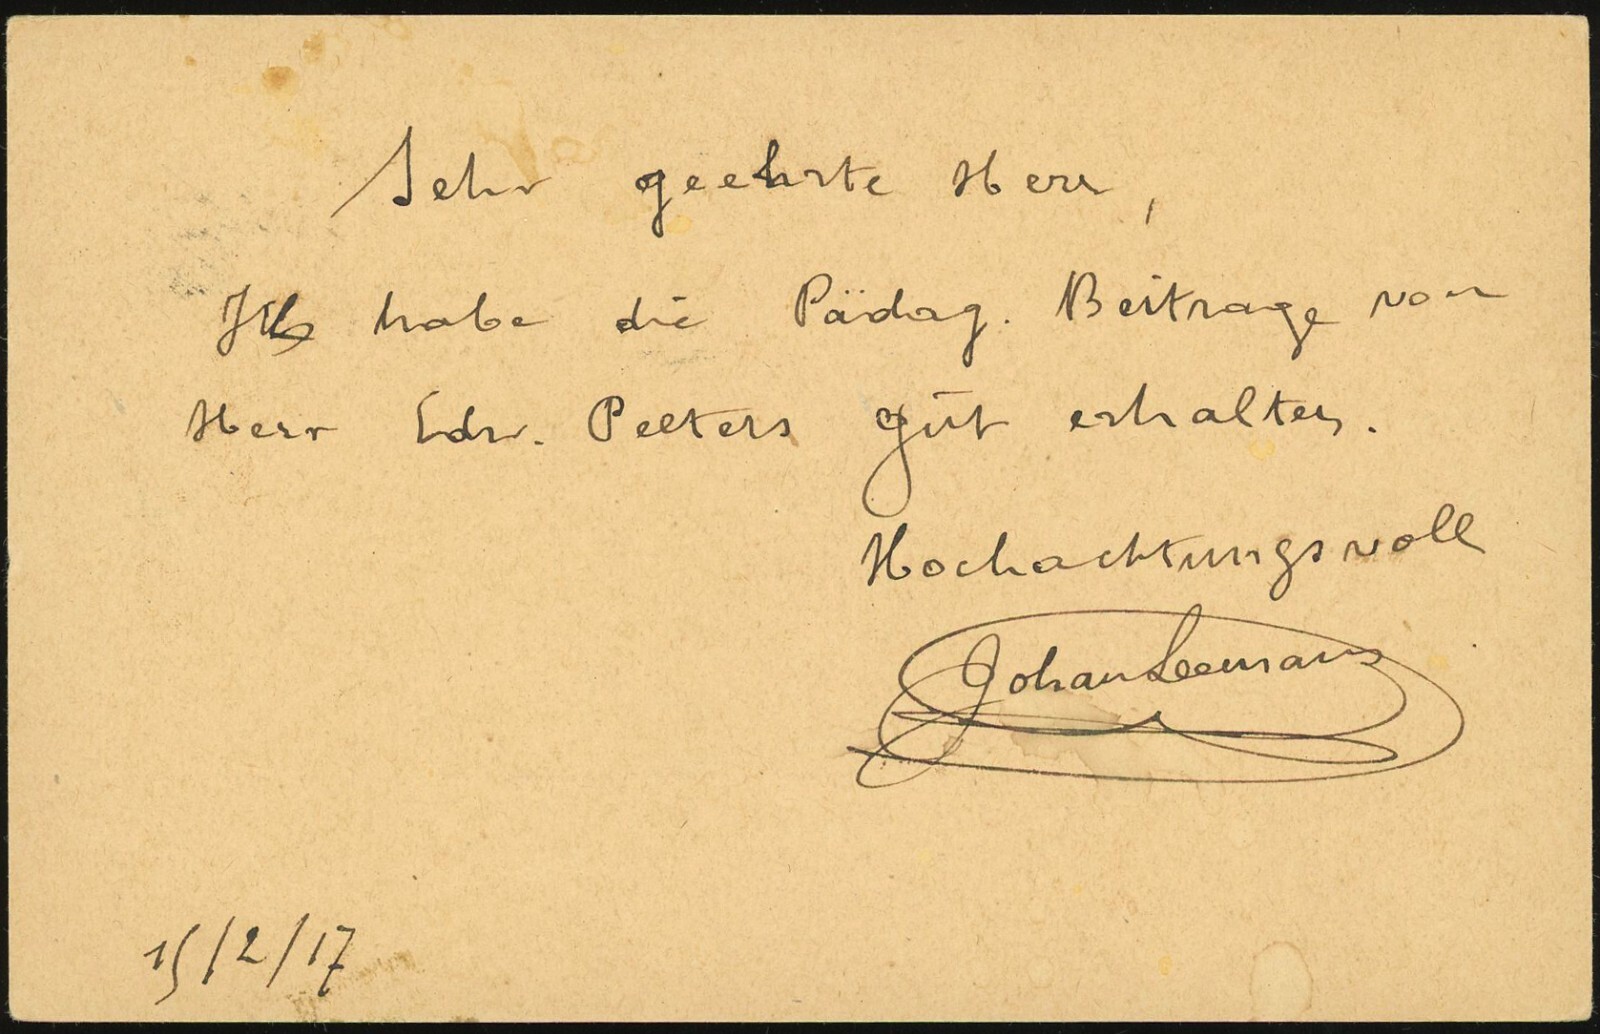 Sehr geehrte Herr,
Ich habe die Pädag. Beitrage von
Herr Edw. Peeters gut erhalten.
Hochachtungsvoll
Johan Leemans
15/2/17